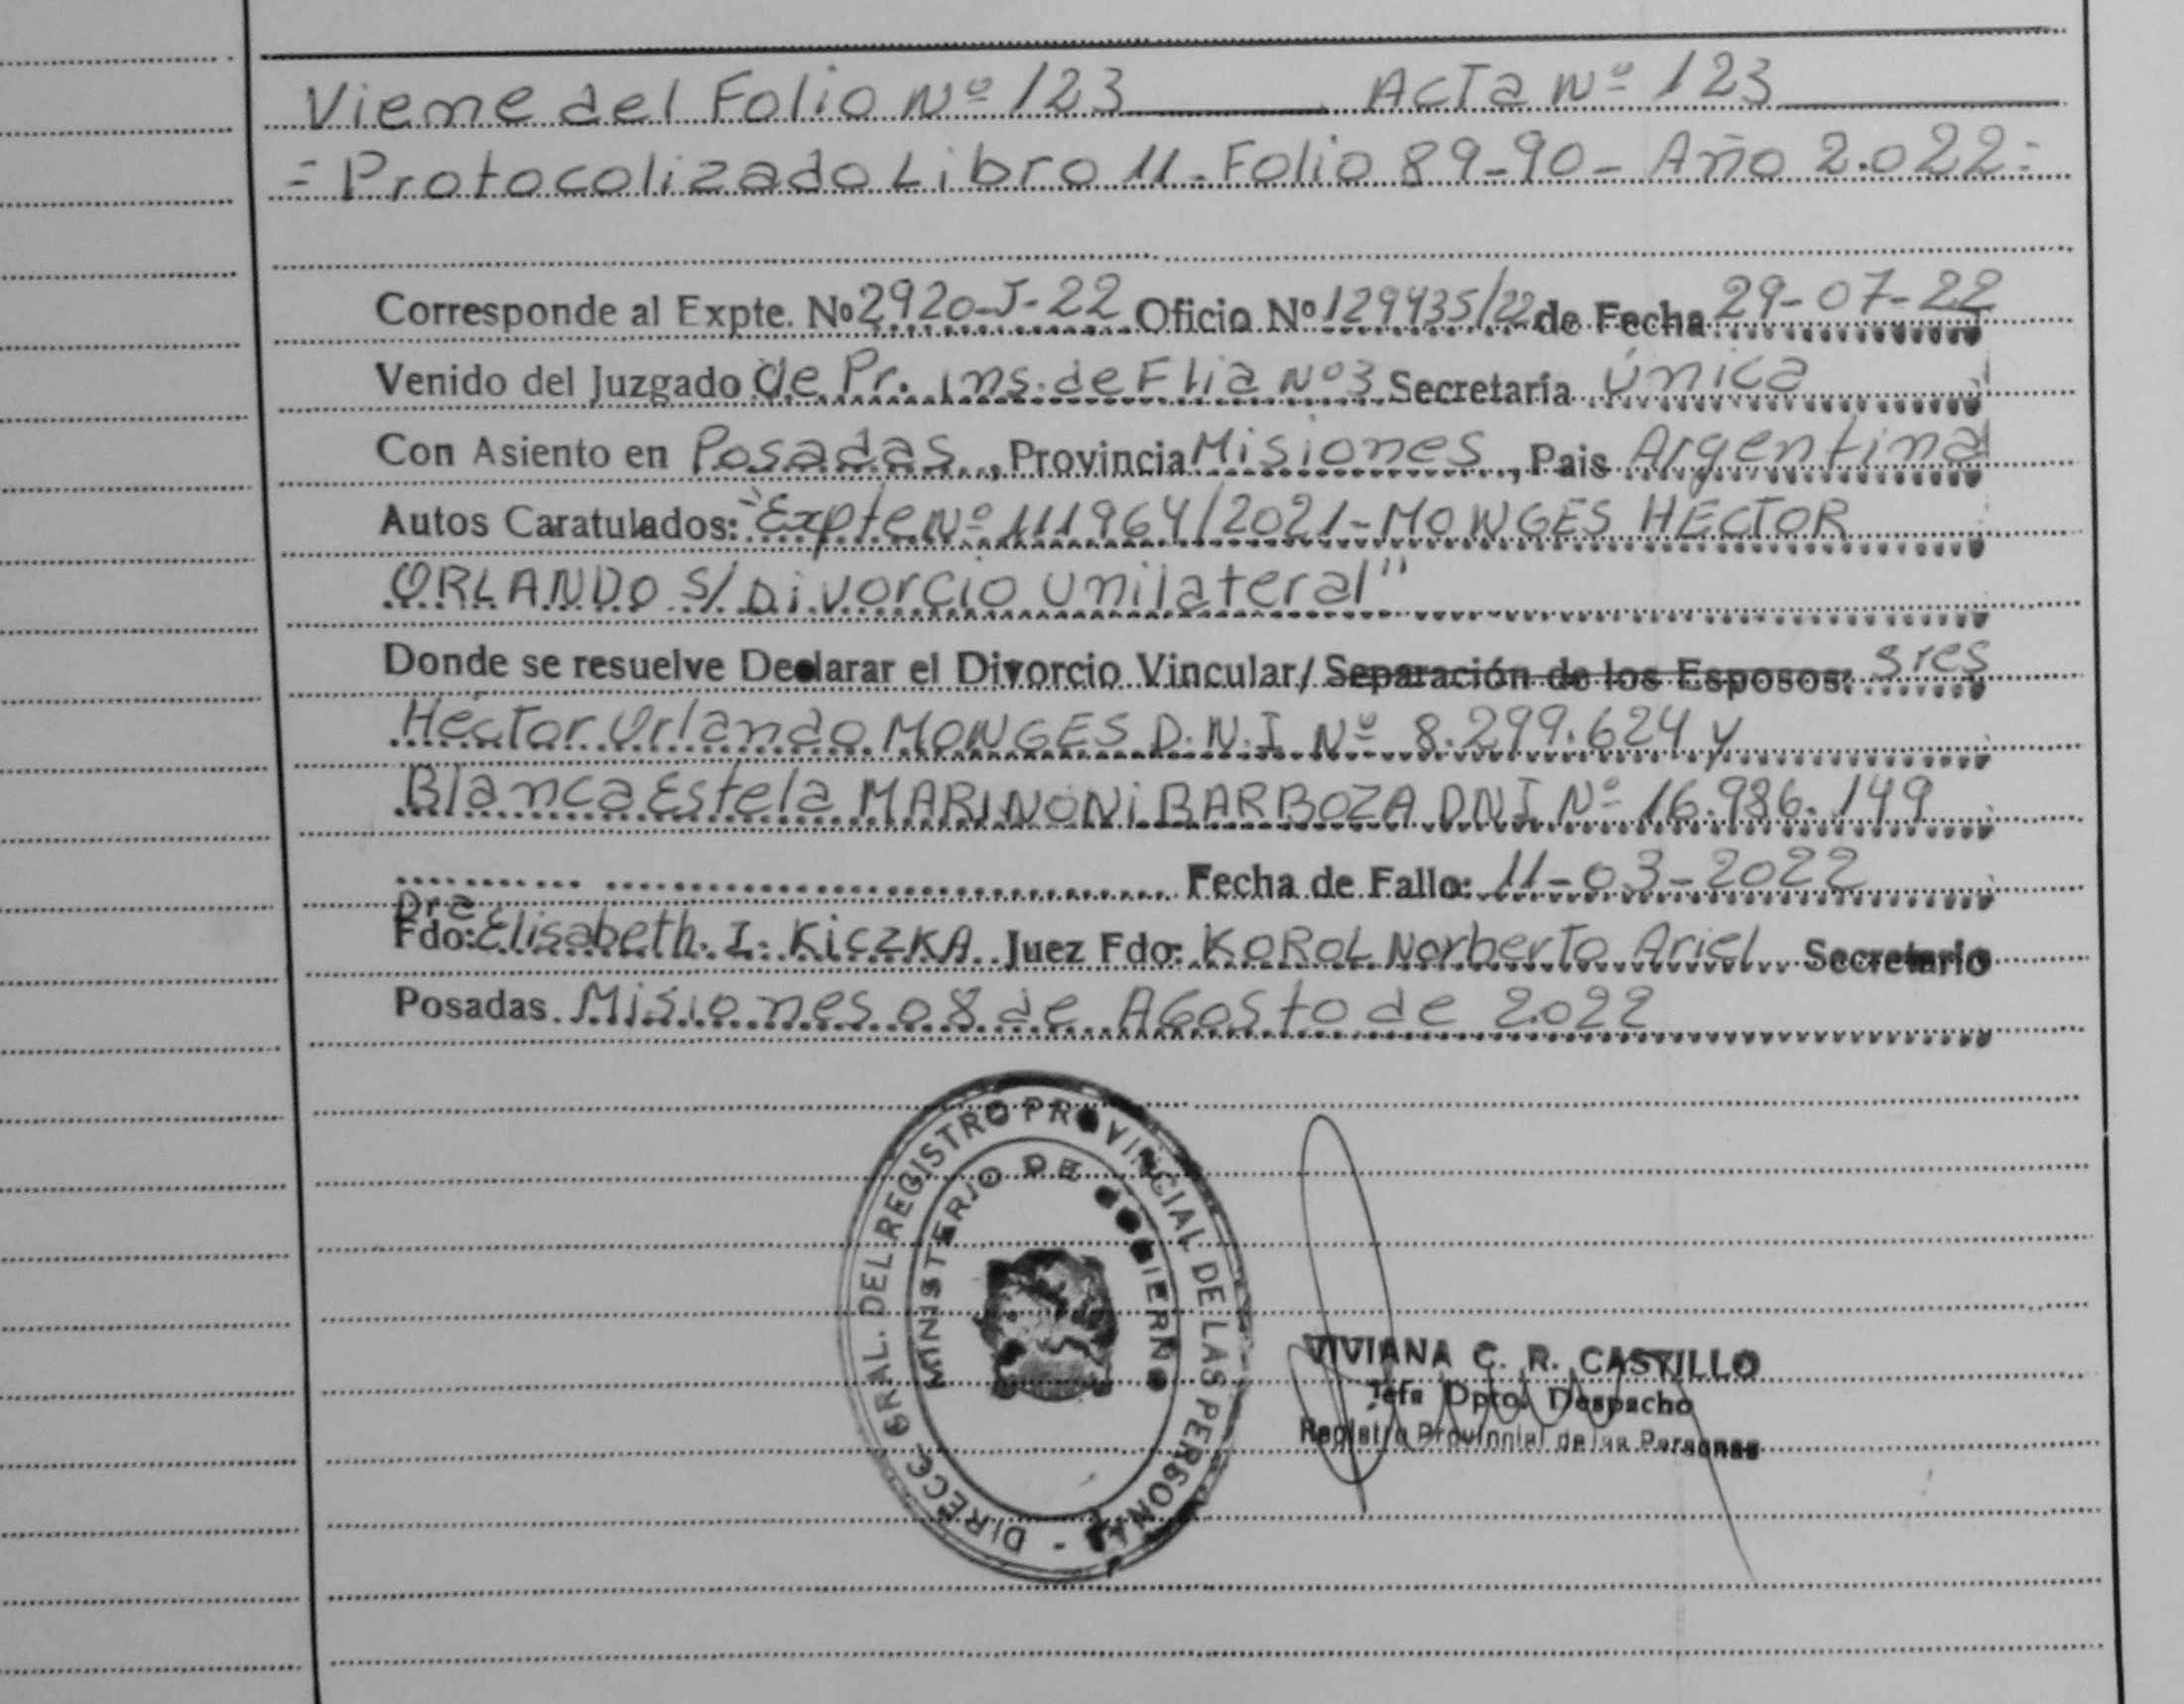 Viene del Folio Nº 123 Acta Nº 123
= Protocolizado Libro 11 - Folio 89-90 - Año 2.022 =
Corresponde al Expte. Nº 2920-J-22 Oficio Nº 129435/22 de Fecha 29-07-22
Venido del Juzgado de Pr. ins. de Flia Nº 3 Secretaría única
Con Asiento en Posadas, Provincia Misiones, Pais Argentina
Autos Caratulados: "Expte Nº 111964/2021 - MONGES HECTOR
ORLANDO S/ Divorcio Unilateral"
Donde se resuelve Declarar el Divorcio Vincular/ Separación de los Esposos: sres
Héctor Orlando MONGES D.N.I. Nº 8.299.624 y
Blanca Estela MARINONI BARBOZA DNI Nº 16.986.149
Fecha de Fallo: 11-03-2022
Dra
Fdo: Elisabeth. I. KiczKA Juez Fdo: KOROL Norberto Ariel Secretario
Posadas. Misiones 08 de AGosto de 2.022
DIRECC. GRAL. DEL REGISTRO PROVINCIAL DE LAS PERSONAS -
MINISTERIO DE GOBIERNO
VIVIANA C. R. CASTILLO
Jefa Dpto. Despacho
Registro Provincial de las Personas